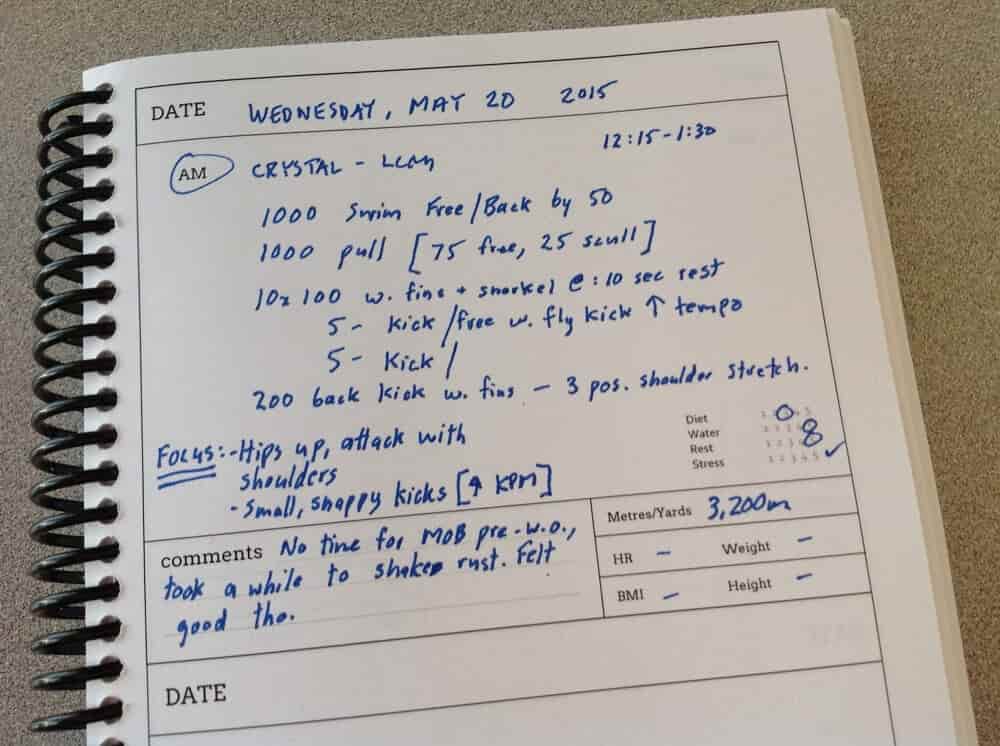 DATE WEDNESDAY, MAY 20 2015
AM CRYSTAL - LCM 12:15-1:30
1000 Swim Free/Back by 50
1000 pull [75 free, 25 scull]
10x100 w. fins + snorkel @ :10 sec rest
5- Kick/free w. fly kick ↑ tempo
5- Kick/
200 back kick w. fins - 3 pos. shoulder stretch.
Focus: - Hips up, attack with
shoulders
- Small, snappy kicks [↑ KPM]
Diet
Water
Rest 8
Stress 1 2 3 4 5 ✓
comments No time for MOB pre-w.o.,
took a while to shake rust. Felt
good tho.
Metres/Yards 3,200m
HR - Weight -
BMI - Height -
DATE